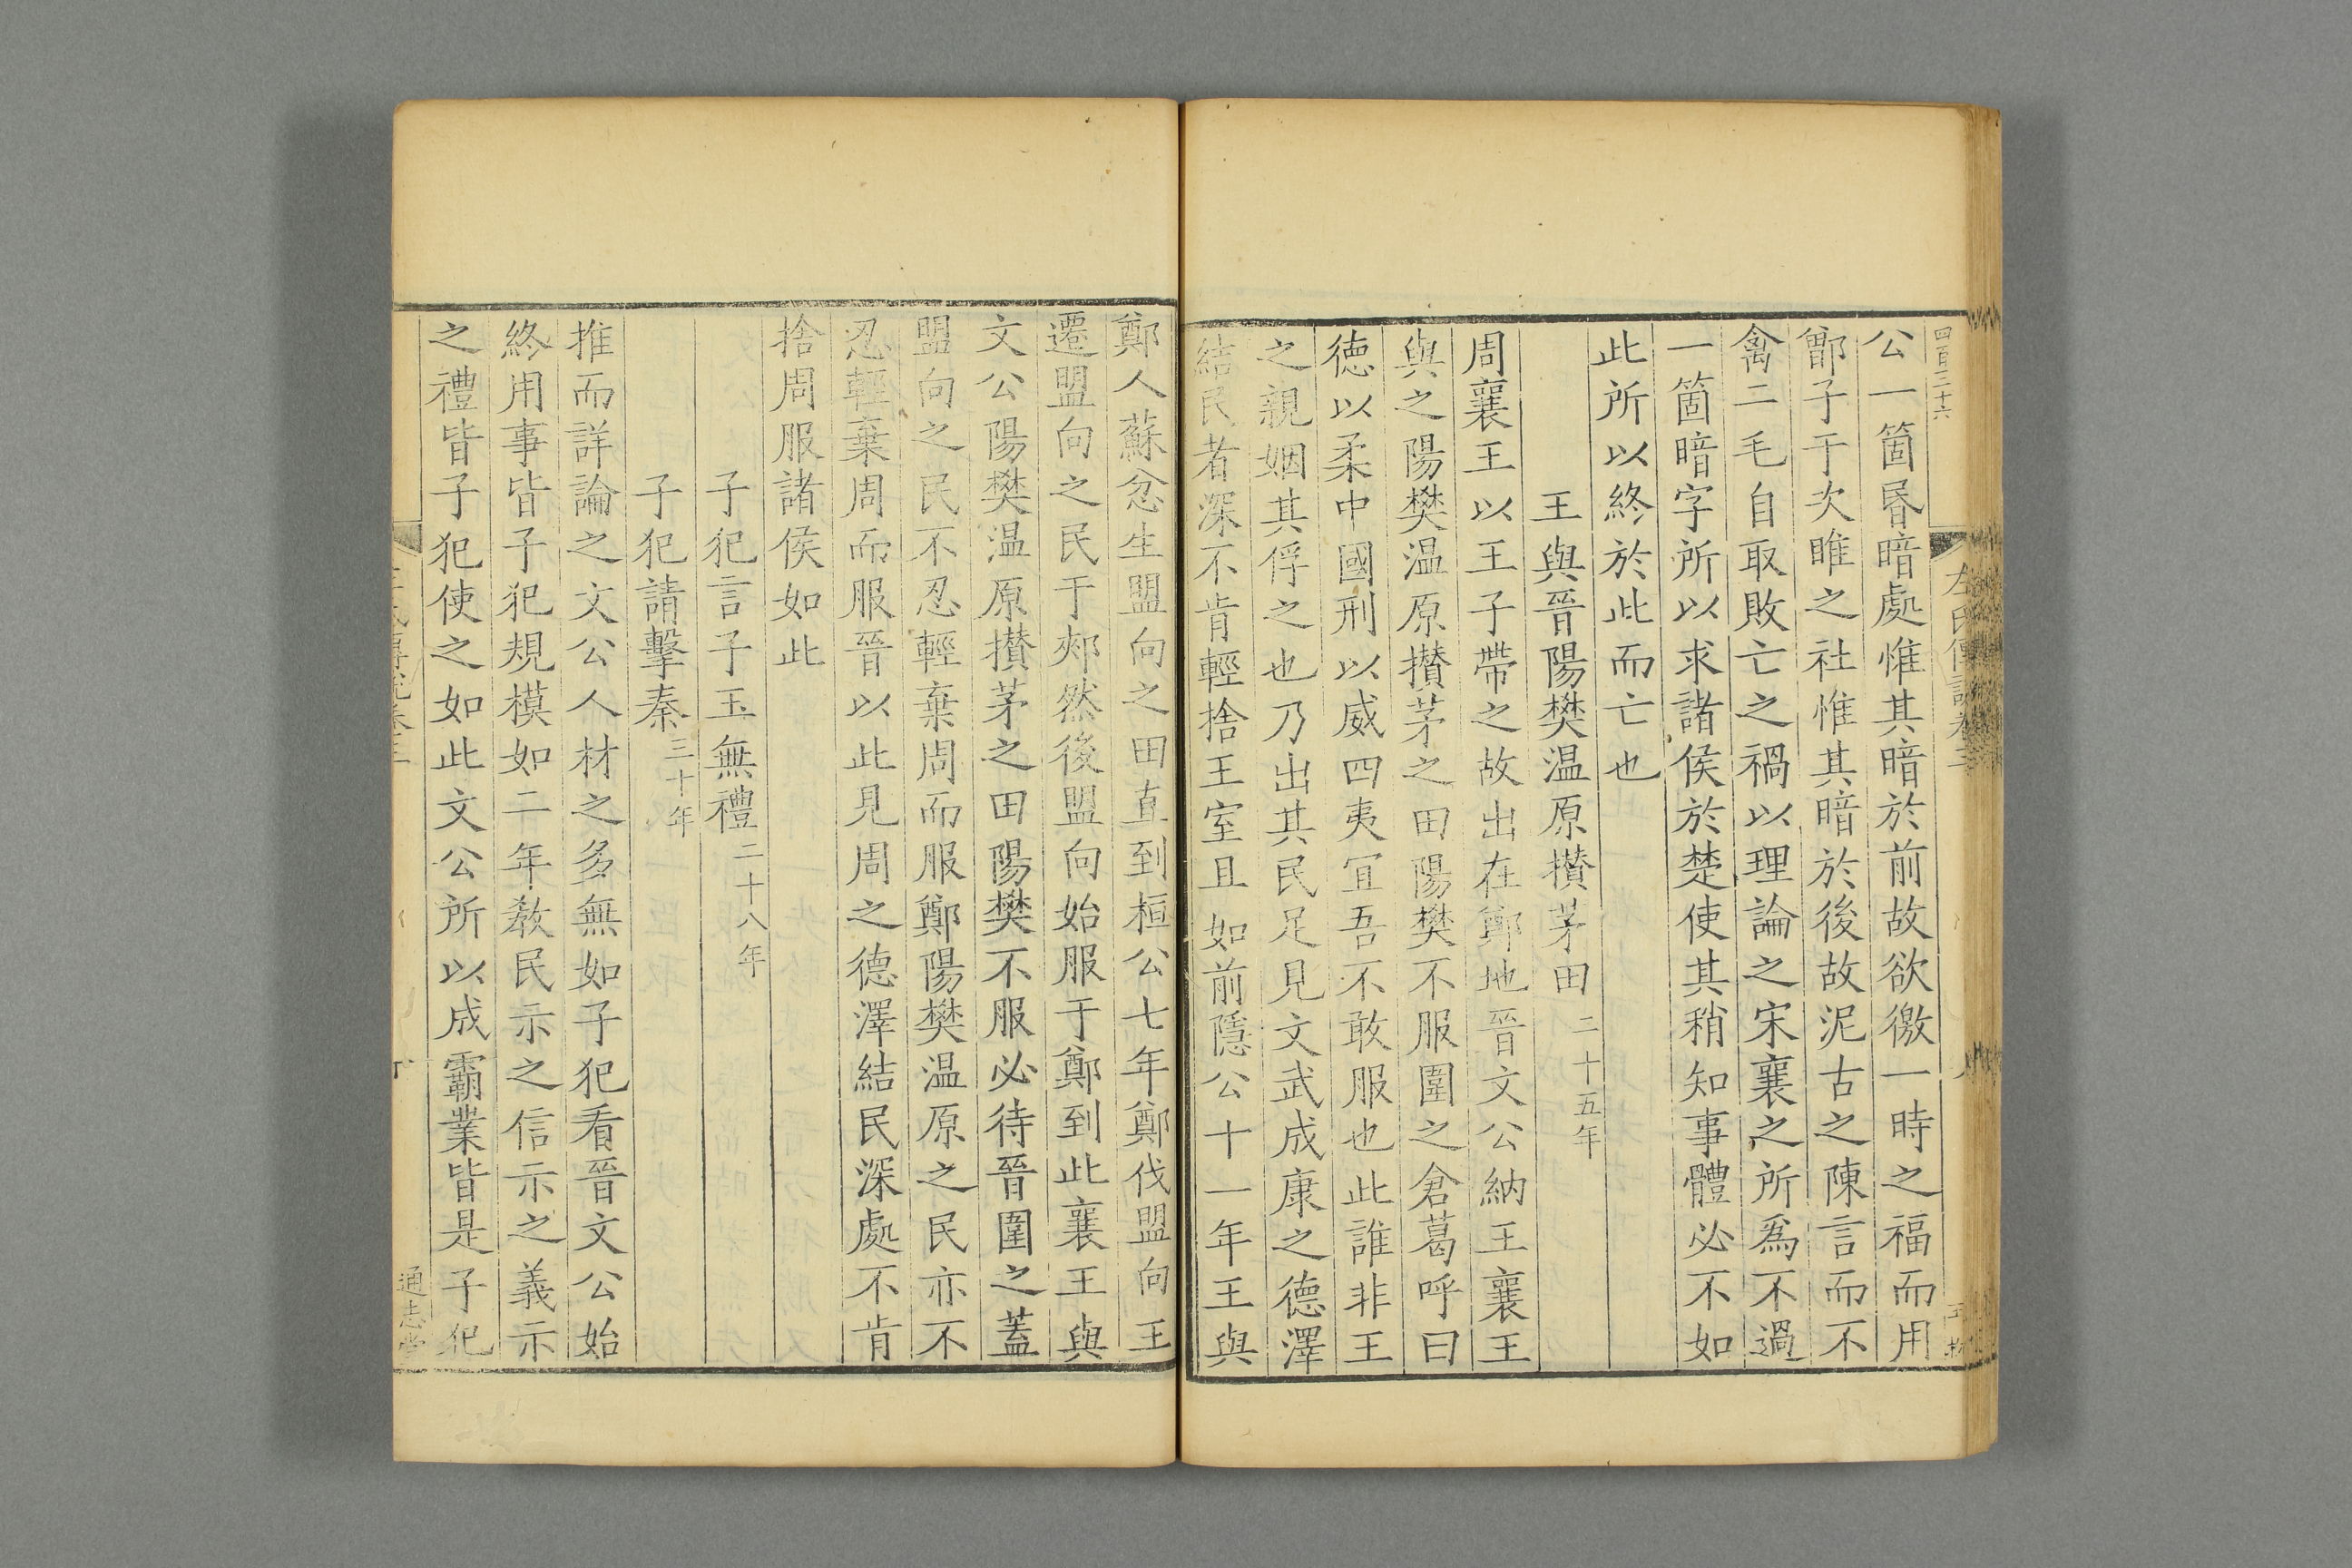 四百二十六
左氏傳說卷三
公一箇昏暗處惟其暗於前故欲徼一時之福而用
鄫子于次睢之社惟其暗於後故泥古之陳言而不
禽二毛自取敗亡之禍以理論之宋襄之所爲不過
一箇暗字所以求諸侯於楚使其稍知事體必不如
此所以終於此而亡也
王與晉陽樊温原攅茅田二十五年
周襄王以王子帶之故出在鄭地晉文公納王襄王
與之陽樊温原攅茅之田陽樊不服圍之倉葛呼曰
德以柔中國刑以威四夷冝吾不敢服也此誰非王
之親姻其俘之也乃出其民足見文武成康之德澤
結民者深不肯輕捨王室且如前隱公十一年王與
鄭人蘇忿生盟向之田直到桓公七年鄭伐盟向王
遷盟向之民于郟然後盟向始服于鄭到此襄王與
文公陽樊温原攅茅之田陽樊不服必待晉圍之蓋
盟向之民不忍輕棄周而服鄭陽樊温原之民亦不
忍輕棄周而服晉以此見周之德澤結民深處不肯
捨周服諸侯如此
子犯言子玉無禮二十八年
子犯請擊秦三十年
推而詳論之文公人材之多無如子犯看晉文公始
終用事皆子犯規模如二年教民示之信示之義示
之禮皆子犯使之如此文公所以成霸業皆是子犯
左氏傳說卷三
通志堂